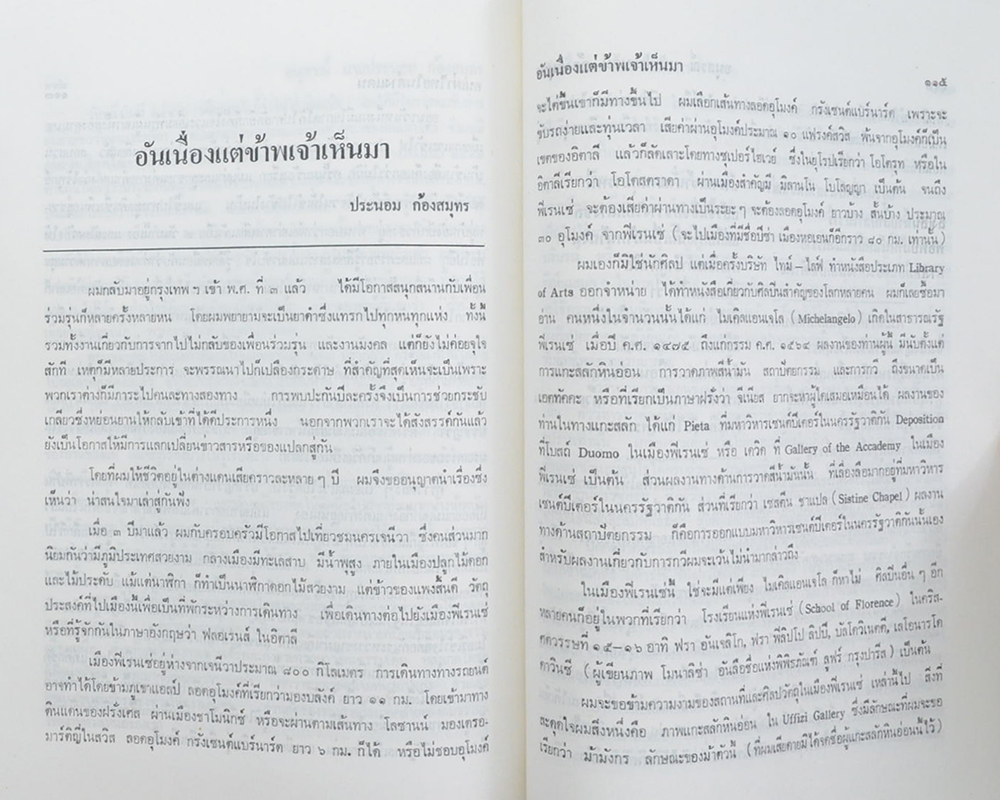 อันเนื่องแต่ข้าพเจ้าเห็นมา
ประนอม ก้องสมุทร
ผมกลับมาอยู่กรุงเทพ ฯ เข้า พ.ศ. ที่ ๓ แล้ว ได้มีโอกาสสนุกสนานกับเพื่อน
ร่วมรุ่นก็หลายครั้งหลายหน โดยผมพยายามจะเป็นยาดำซึ่งแทรกไปทุกหนทุกแห่ง ทั้งนี้
รวมทั้งงานเกี่ยวกับการจากไปไม่กลับของเพื่อนร่วมรุ่น และงานมงคล แต่ก็ยังไม่ค่อยจุใจ
สักที เหตุก็มีหลายประการ จะพรรณนาไปก็เปลืองกระดาษ ที่สำคัญที่สุดเห็นจะเป็นเพราะ
พวกเราต่างก็มีภาระไปคนละทางสองทาง การพบปะกันปีละครั้งจึงเป็นการช่วยกระชับ
เกลียวซึ่งหย่อนยานให้กลับเข้าที่ได้ดีประการหนึ่ง นอกจากพวกเราจะได้สังสรรค์กันแล้ว
ยังเป็นโอกาสให้มีการแลกเปลี่ยนข่าวสารหรือของแปลกสู่กัน
โดยที่ผมใช้ชีวิตอยู่ในต่างแดนเสียคราวละหลาย ๆ ปี ผมจึงขออนุญาตนำเรื่องซึ่ง
เห็นว่า น่าสนใจมาเล่าสู่กันฟัง
เมื่อ ๓ ปีมาแล้ว ผมกับครอบครัวมีโอกาสไปเที่ยวชมนครเจนีวา ซึ่งคนส่วนมาก
นิยมกันว่ามีภูมิประเทศสวยงาม กลางเมืองมีทะเลสาบ มีน้ำพุสูง ภายในเมืองปลูกไม้ดอก
และไม้ประดับ แม้แต่นาฬิกา ก็ทำเป็นนาฬิกาดอกไม้สวยงาม แต่ข้าวของแพงสิ้นดี วัตถุ
ประสงค์ที่ไปเมืองนี้เพื่อเป็นที่พักระหว่างการเดินทาง เพื่อเดินทางต่อไปยังเมืองฟิเรนเซ่
หรือที่รู้จักกันในภาษาอังกฤษว่า ฟลอเรนส์ ในอิตาลี
เมืองฟิเรนเซ่อยู่ห่างจากเจนีวาประมาณ ๘๐๐ กิโลเมตร การเดินทางทางรถยนต์
อาจทำได้โดยข้ามภูเขาแอลป์ ลอดอุโมงค์ที่เรียกว่ามองบลังค์ ยาว ๑๑ กม. โดยเข้ามาทาง
ดินแดนของฝรั่งเศส ผ่านเมืองชาโมนิกซ์ หรือจะผ่านตามเส้นทาง โลซานน์ มองเตรอ-
มาร์ติญีในสวิส ลอดอุโมงค์ กรังเซนต์แบร์นาร์ด ยาว ๖ กม. ก็ได้ หรือไม่ชอบอุโมงค์
อันเนื่องแต่ข้าพเจ้าเห็นมา
๑๑๕
จะไต่ขึ้นเขาก็มีทางขึ้นไป ผมเลือกเส้นทางลอดอุโมงค์ กรังเซนต์แบร์นาร์ด เพราะจะ
ขับรถง่ายและทุ่นเวลา เสียค่าผ่านอุโมงค์ประมาณ ๑๐ แฟรงค์สวิส พ้นจากอุโมงค์ก็เป็น
เขตของอิตาลี แล้วก็ลัดเลาะโดยทางซุเปอร์ไฮเวย์ ซึ่งในยุโรปเรียกว่า โอโตรูท หรือใน
อิตาลีเรียกว่า โอโตสตราดา ผ่านเมืองสำคัญมี มิลาโน โบโลญญา เป็นต้น จนถึง
ฟิเรนเซ่ จะต้องเสียค่าผ่านทางเป็นระยะ ๆ จะต้องลอดอุโมงค์ ยาวบ้าง สั้นบ้าง ประมาณ
๓๐ อุโมงค์ จากฟิเรนเซ่ (จะไปเมืองที่มีชื่อปีซ่า เมืองหอเอนก็อีกราว ๘๐ กม. เท่านั้น)
ผมเองก็มิใช่นักศิลป แต่เมื่อครั้งบริษัท ไทม์ – ไลฟ์ ทำหนังสือประเภท Library
of Arts ออกจำหน่าย ได้ทำหนังสือเกี่ยวกับศิลปินสำคัญของโลกหลายคน ผมก็เลยซื้อมา
อ่าน คนหนึ่งในจำนวนนั้นได้แก่ ไมเคิลแอนเจโล (Michelangelo) เกิดในสาธารณรัฐ
ฟิเรนเซ่ เมื่อปี ค.ศ. ๑๔๗๕ ถึงแก่กรรม ค.ศ. ๑๕๖๔ ผลงานของท่านผู้นี้ มีนับตั้งแต่
การแกะสลักหินอ่อน การวาดภาพสีน้ำมัน สถาปัตยกรรม และการกวี ถึงขนาดเป็น
เอตทัคคะ หรือที่เรียกเป็นภาษาฝรั่งว่า จีเนียส ยากจะหาผู้ใดเสมอเหมือนได้ ผลงานของ
ท่านในทางแกะสลัก ได้แก่ Pieta ที่มหาวิหารเซนต์ปีเตอร์ในนครรัฐวาติกัน Deposition
ที่โบสถ์ Duomo ในเมืองฟิเรนเซ่ หรือ เดวิด ที่ Gallery of the Accademy ในเมือง
ฟิเรนเซ่ เป็นต้น ส่วนผลงานทางด้านการวาดสีน้ำมันนั้น ที่เลื่องลือมากอยู่ที่มหาวิหาร
เซนต์ปีเตอร์ในนครรัฐวาติกัน ส่วนที่เรียกว่า เซสตีน ชาเปล (Sistine Chapel) ผลงาน
ทางด้านสถาปัตยกรรม ก็คือการออกแบบมหาวิหารเซนต์ปีเตอร์ในนครรัฐวาติกันนั้นเอง
สำหรับผลงานเกี่ยวกับการกวีผมจะเว้นไม่นำมากล่าวถึง
ในเมืองฟิเรนเซ่นี้ ใช่จะมีแต่เพียง ไมเคิลแอนเจโล ก็หาไม่ ศิลปินอื่น ๆ อีก
หลายคนก็อยู่ในพวกที่เรียกว่า โรงเรียนแห่งฟิเรนเซ่ (School of Florence) ในคริส-
ตศวรรษที่ ๑๕–๑๖ อาทิ ฟรา อันเจลิโก, ฟรา ฟิลิปโป ลิปปี, บัสโควิเนตตี, เลโอนารโด
ดาวินซี (ผู้เขียนภาพ โมนาลิซ่า อันลือชื่อแห่งพิพิธภัณฑ์ ลูฟร์ กรุงปารีส) เป็นต้น
ผมจะขอข้ามความงามของสถานที่และศิลปวัตถุในเมืองฟิเรนเซ่ เหล่านี้ไป สิ่งที่
สะดุดใจผมสิ่งหนึ่งคือ ภาพแกะสลักหินอ่อน ใน Uffizi Gallery ซึ่งมีลักษณะที่ผมจะขอ
เรียกว่า ม้ามังกร ลักษณะของม้าตัวนี้ (ที่ผมเสียดายมิได้จดชื่อผู้แกะสลักหินอ่อนนี้ไว้)